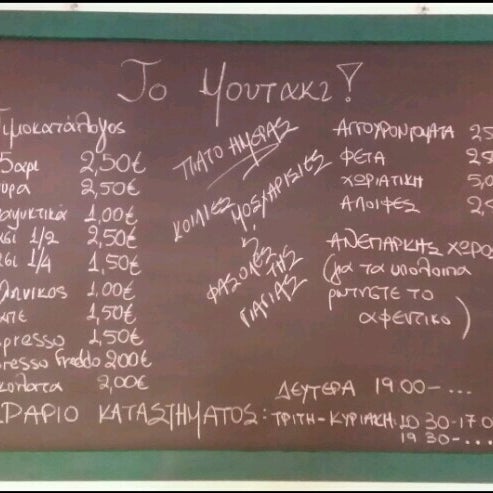 Το Μουτάκι!
Τιμοκατάλογος
2,50€
2,50€
1,00€
1/2 2,50€
1/4 1,50€
1,00€
1,50€
1,50€
Freddo 2,00€
2,00€
ΠΙΑΤΟ ΗΜΕΡΑΣ
ΚΟΙΛΙΕΣ ΜΟΣΧΑΡΙΣΙΕΣ
?
ΦΑΣΟΛΕΣ ΤΗΣ
ΓΙΑΓΙΑΣ
ΑΓΓΟΥΡΟΝΤΟΜΑΤΑ
ΦΕΤΑ
ΧΩΡΙΑΤΙΚΗ
ΑΛΟΙΦΕΣ
ΑΝΕΠΑΡΚΗΣ ΧΩΡΟΣ
(για τα υπόλοιπα
ρωτήστε το
αφεντικό)
ΔΕΥΤΕΡΑ 19:00-...
ΩΡΑΡΙΟ ΚΑΤΑΣΤΗΜΑΤΟΣ: ΤΡΙΤΗ-ΚΥΡΙΑΚΗ: 10:30-17:0
19:30-...